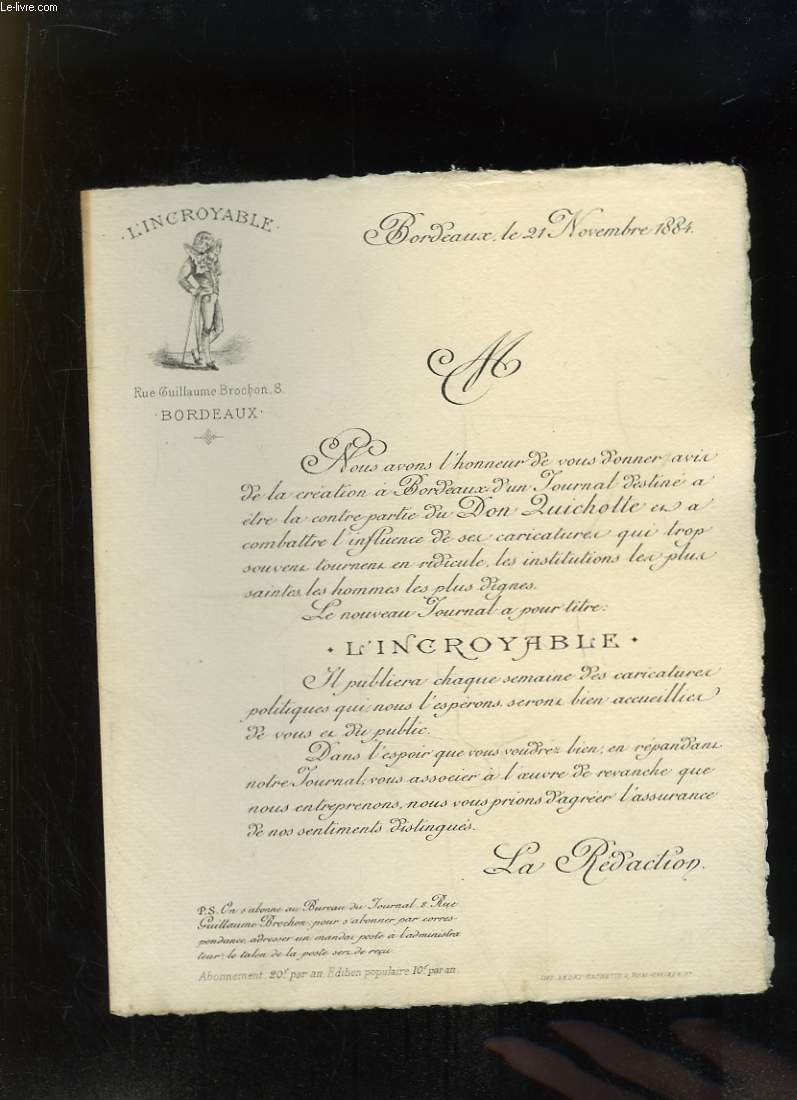 Le-livre.com
L'INCROYABLE
Rue Guillaume Brochon, 8.
·BORDEAUX·
Bordeaux, le 21 Novembre 1884.
M
Nous avons l'honneur de vous donner avis
de la création à Bordeaux, d'un Journal destiné a
être la contre partie du Don Quichotte et a
combattre l'influence de ses caricatures qui trop
souvent tournent en ridicule, les institutions les plus
saintes, les hommes les plus dignes.
Le nouveau Journal a pour titre:
· L'INCROYABLE ·
Il publiera chaque semaine des caricatures
politiques qui, nous l'espérons, seront bien accueillies
de vous et du public.
Dans l'espoir que vous voudrez bien, en répandant
notre Journal, vous associer à l'œuvre de revanche que
nous entreprenons, nous vous prions d'agréer l'assurance
de nos sentiments distingués.
La Rédaction.
P.S. On s'abonne au Bureau du Journal, 8, Rue
Guillaume Brochon; pour s'abonner par corres-
pondance, adresser un mandat poste à l'administra
teur; le talon de la poste sert de reçu.
Abonnement, 20f par an. Edition populaire 10f par an.
IMP.